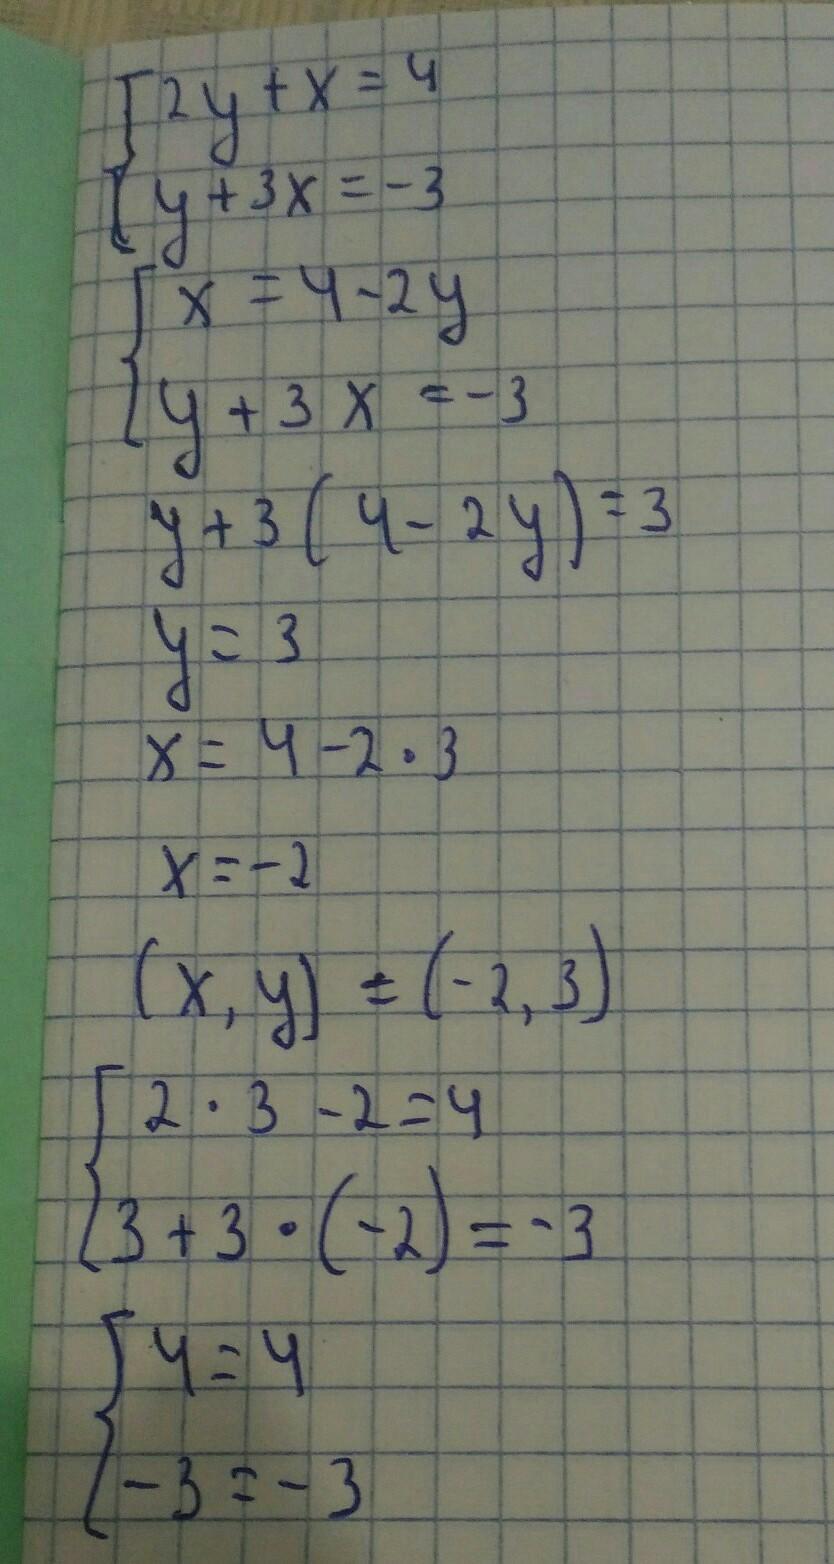 {2y+x=4
{y+3x=-3
{x=4-2y
{y+3x=-3
y+3(4-2y)=3
y=3
x=4-2·3
x=-2
(x,y)=(-2,3)
{2·3-2=4
{3+3·(-2)=-3
{4=4
{-3=-3